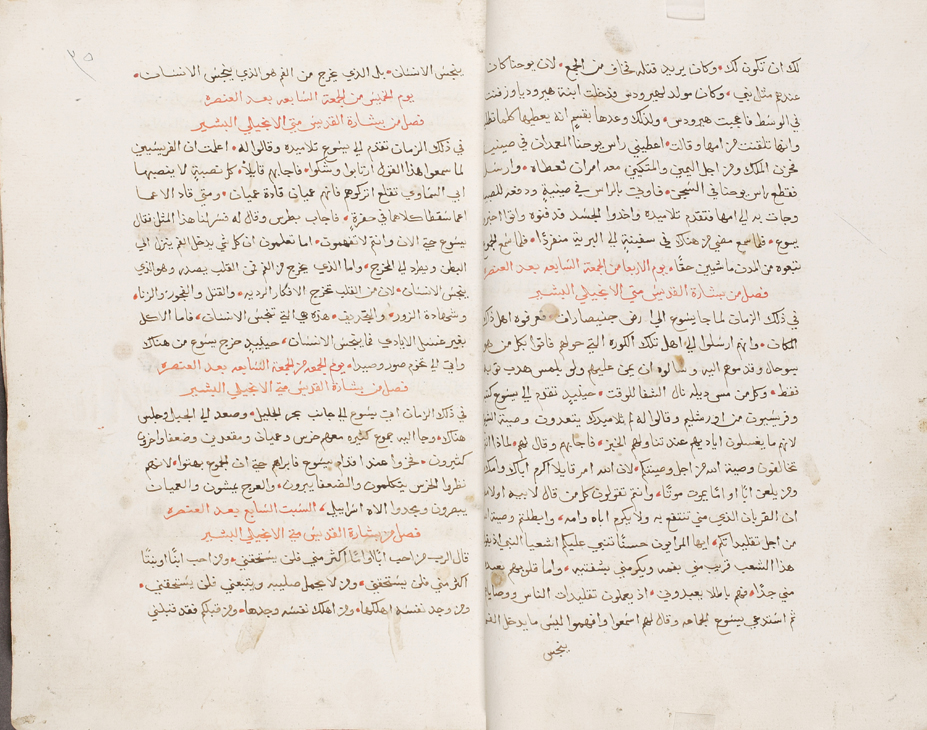 لك ان تكون لك وكان يريد قتله فخاف من الجمع لان يوحنا كان
عندهم مثل نبي وكان مولد لهيرودس فدخلت ابنة هيروديا ورقصت
في الوسط فاعجبت هيرودس ولذلك وعدها بقسم انه يعطيها كلما تطل
وانها تلقنت من امها وقالت اعطيني راس يوحنا المعمدان في صينية
فحزن الملك ومن اجل اليمين والمتكيين معه امر ان تعطاه وارسل
فقطع راس يوحنا في السجن فاوتي بالراس في صينية ودفعه للصبية
وجات به الى امها فتقدم تلاميذه واخذوا الجسد فدفنوه واتوا اخبروا
يسوع فلما سمع مضى من هناك في سفينة الى البرية منفردًا فلما سمع الجمع
تبعوه من المدن ماشيين حقًا يوم الاربعا من الجمعة السابعه بعد العنصره
فصل من بشارة القديس متي الانجيلي البشير
في ذلك الزمان لما جا يسوع الى ارض جنيصارات فعرفوه اهل ذلك
المكان وانهم ارسلوا الى اهل تلك الكورة التي حولهم فاتوا بكل من به
سو حال وقدموهم اليه وسالوه ان يمن عليهم ولو بلمس هدب ثوبه
فقط وكل من مس ذيله نال الشفا للوقت حينيذ تقدم الى يسوع كتبة
وفريسيون من اورشليم وقالوا له لم تلاميذك يتعدون وصية الشيوخ
لانهم ما يغسلون اياديهم عند تناولهم الخبز فاجابهم وقال لهم لماذا انتم
تخالفون وصية الله من اجل وصيتكم لان الله امر قايلًا اكرم اباك وامك
ومن يلعن ابًا او امًا يموت موتًا وانتم تقولون كل من قال لابيه او لامه
ان القربان الذي مني تنتفع به ولا يكرم اباه وامه وابطلتم وصية الله
من اجل تقليداتكم ايها المراؤون حسنًا تنبي عليكم اشعيا النبي اذ يقول
هذا الشعب قريب مني بفمه ويكرمني بشفتيه واما قلوبهم بعيدة
مني جدًا فهم باطلًا يعبدوني اذ يعلمون تقليدات الناس ووصايا
ثم استدعى يسوع الجماعه وقال لهم اسمعوا وافهموا ليس ما يدخل الفم
ينجس
٣٥
ينجس الانسان بل الذي يخرج من الفم هو الذي ينجس الانسان
يوم الخميس من الجمعة السابعه بعد العنصره
فصل من بشارة القديس متي الانجيلي البشير
في ذلك الزمان تقدم الى يسوع تلاميذه وقالوا له اعلمت ان الفريسيين
لما سمعوا هذا القول ارتابوا وشكوا فاجابهم قايلًا كل نصبة لا ينصبها
ابي السماوي تقتلع اتركوهم فانهم عميان قادة عميان ومتى قاد الاعما
اعما سقطا كلاهما في حفرة فاجاب بطرس وقال له فسر لنا هذا المثل فقال
يسوع حتى الان وانتم لا تفهمون اما تعلمون ان كل شي يدخل الفم ينزل الى
البطن ويطرد الى المخرج واما الذي يخرج من الفم فمن القلب يصدر وهو الذي
ينجس الانسان لان من القلب تخرج الافكار الرديه والقتل والفجور والزنا
وشهادة الزور والتجديف هذه هي التي تنجس الانسان فاما الاكل
بغير غسل الايادي فما ينجس الانسان حينيذ خرج يسوع من هناك
واتى الى تخوم صور وصيدا يوم الجمعه من الجمعة السابعه بعد العنصره
فصل من بشارة القديس متي الانجيلي البشير
في ذلك الزمان اتى يسوع الى جانب بحر الجليل وصعد الى الجبل وجلس
هناك وجا اليه جموع كثيره معهم خرس وعميان ومقعدين وضعفا واخرون
كثيرون فخروا عند اقدام يسوع فابراهم حتى ان الجموع بهتوا لانهم
نظروا الخرس يتكلمون والضعفا يبرون والعرج يمشون والعميان
يبصرون ويمجدوا الاه اسراييل السبت السابع بعد العنصره
فصل من بشارة القديس متي الانجيلي البشير
قال الرب من احب ابًا او امًا اكثر مني فلن يستحقني ومن احب ابنًا او بنتًا
اكثر مني فلن يستحقني ومن لا يحمل صليبه ويتبعني فلن يستحقني
ومن وجد نفسه اهلكها ومن اهلك نفسه وجدها ومن قبلكم فقد قبلني